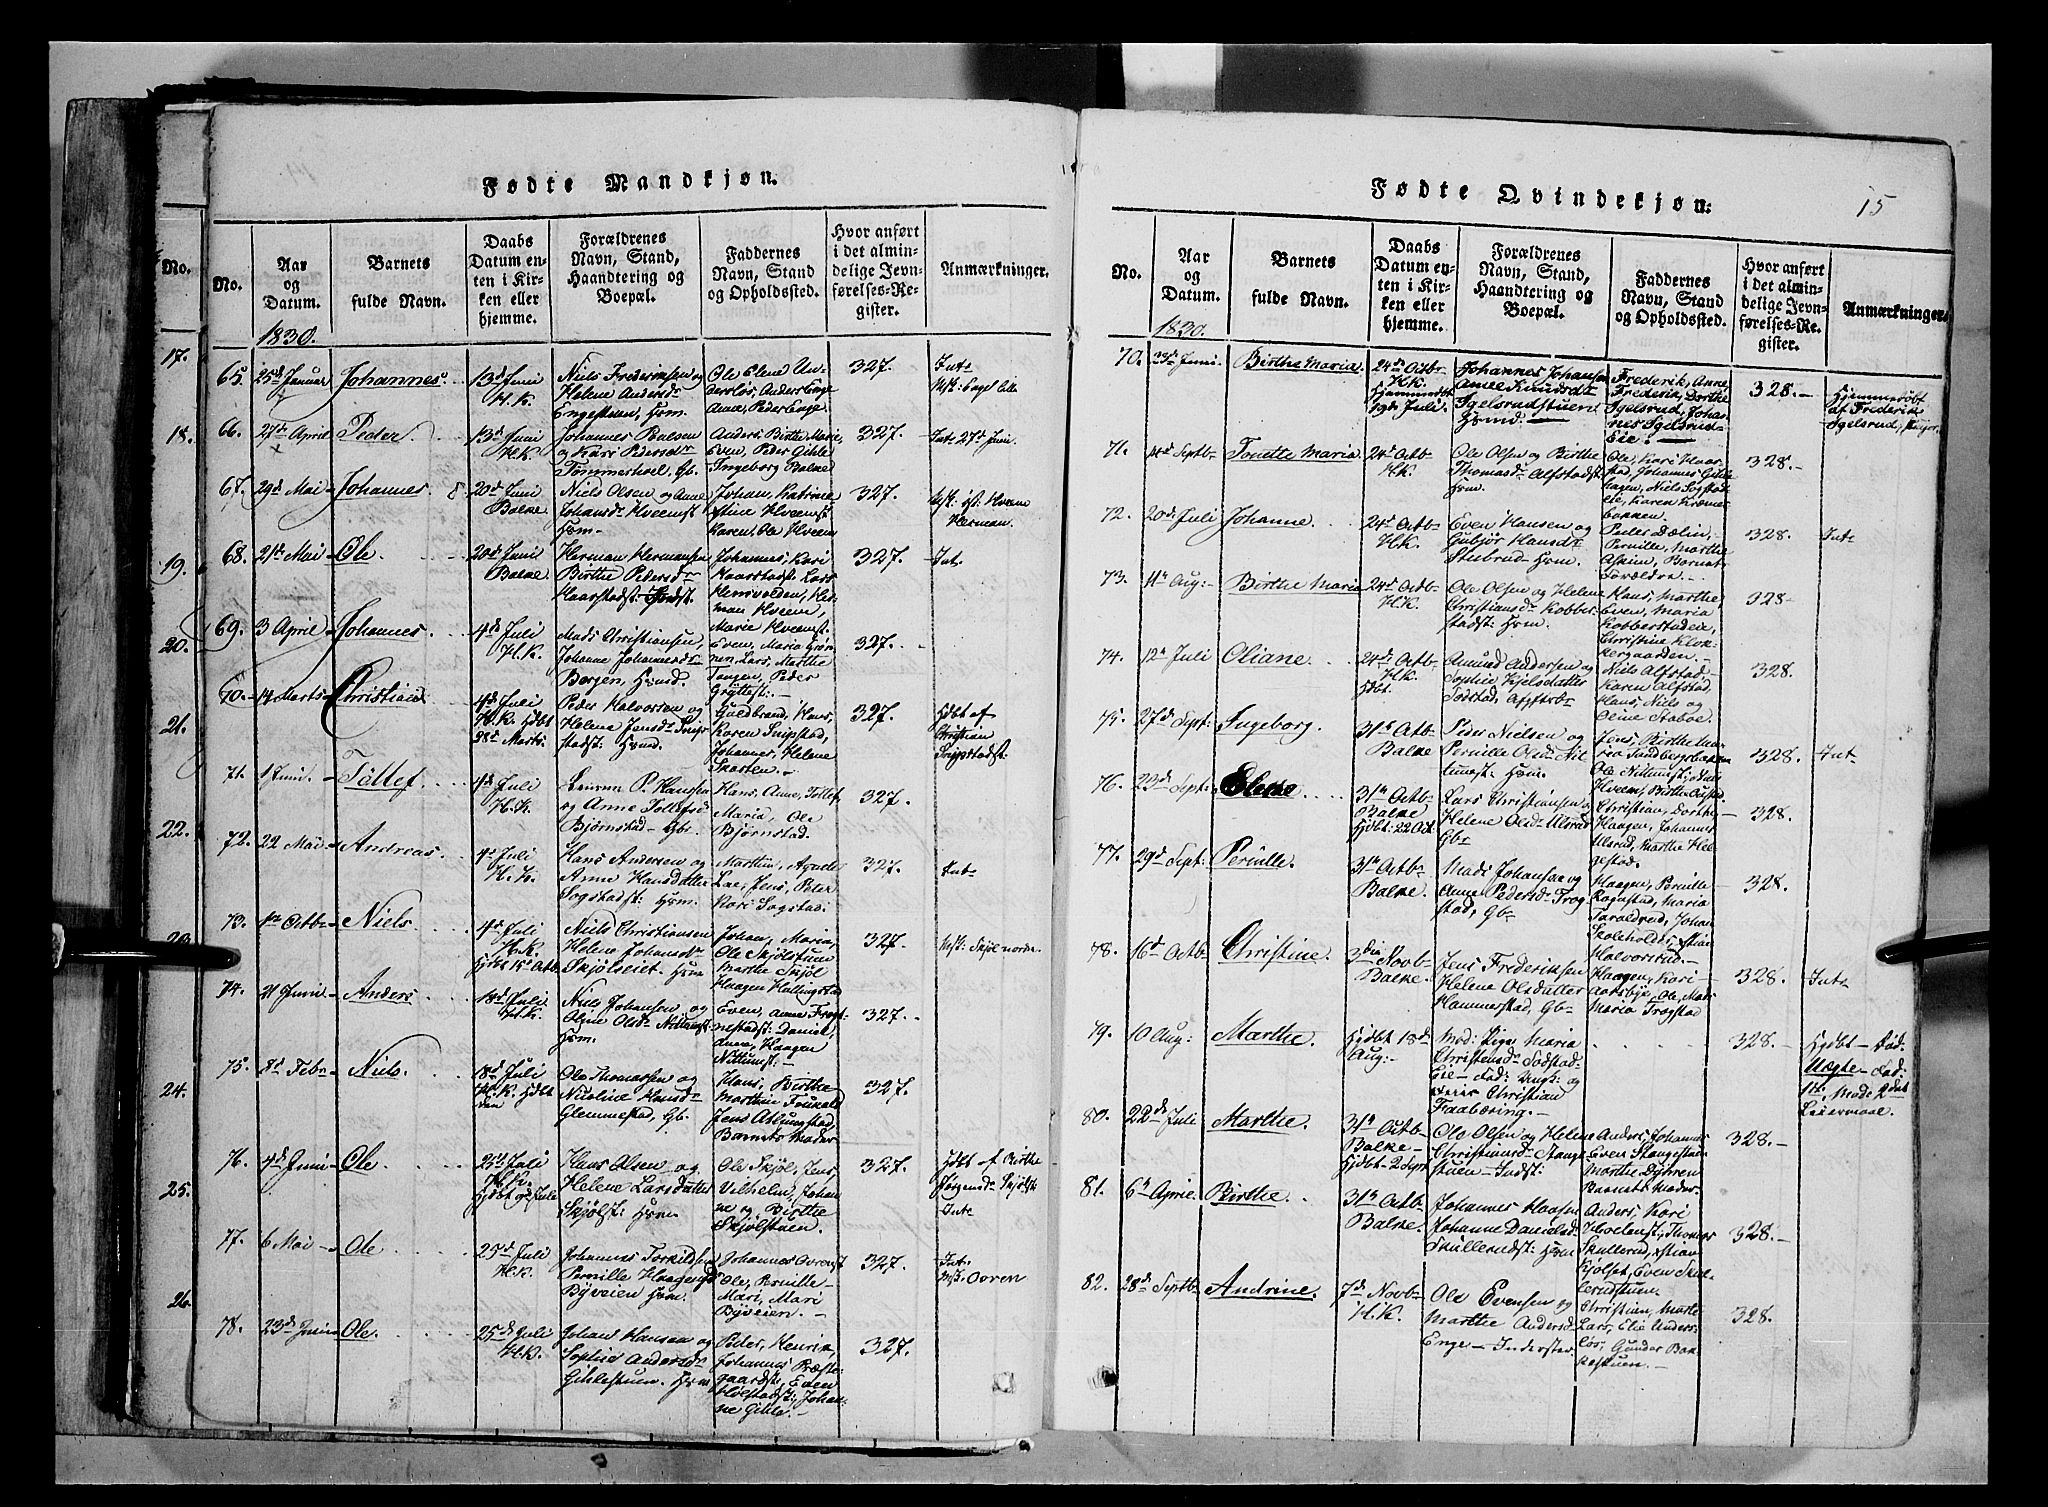 Fødte Mandkjøn.
No.
Aar og Datum.
Barnets fulde Navn.
Daabs Datum enten i Kirken eller hjemme.
Forældrenes Navn, Stand, Haandtering og Boepæl.
Faddernes Navn, Stand og Opholdssted.
Hvor anført i det almindelige Jevnførelses-Register.
Anmærkninger.
1830.
65. 25d Januar Johannes. 13d Juni H.K.
Niels Frederiksen og Helene Andersdr Engestuen, Hsm.
Ole Elene Underslös, Anders Enge Anne, Peder Enge.
327. Int:
66. 27d April Peder 13d Juni H.K.
Johannes Balsen og Kari Pedersdr Tommerhoel, Gb.
Anders, Birthe Marie, Even, Peder Gihle Ingeborg Balke
327. Int: 27d Juni.
67. 29d Mai Johannes. 20d Juni Balke
Niels Olsen og Anne Johansdr Hveemst Hsm.
Johan, Katrine Stine Hveemst. Karen, Ole Hveem
327. Hveem Herman.
68. 21d Mai Ole 20d Juni Balke
Herman Hermansen Birthe Pedersdr Haarstadst:
Johannes, Kari Haarstadst: Lars Hemvolden, Herman Hveem, Marie Hveemst.
327. Int.
69. 3 April Johannes. 4d Juli H.K.
Mads Christiansen, Johanne Johannesdr Borgen, Hsmd.
Even, Maria Grönnen, Lars, Marthe Tangen, Peder Gryttest:
327.
70. 14 Marts Christian 4d Juli H.K. Hdbt 28d Marts.
Peder Halvorsen og Helene Jensdr Snipstadst: Hsmd.
Guldbrand, Hans, Karen Snipstad, Johannes, Helene Skarten.
327. Hjdbt af Christian Snipstadst:
71. 1 Juni. Tollef 4d Juli H.K.
P. Hansen og Anne Tollefsdr Bjørnstad Gb.
Hans, Anne, Tollef, Maria, Ole Bjørnstad.
327.
72. 22 Mai Andreas. 4d Juli H.K.
Hans Andersen og Anne Hansdatter Sogstadst: Hsm.
Marthin, Agnete Lae, Jens, Peter Kari Sogstad:
327. Int
73. Octbr Niels 4d Juli H.K. Hjdbt 15d Octb.
Niels Christiansen Helene Johansdr Skjölseiet. Hsm
Johan, Maria, Ole Skjölstuen Marthe Skjöl Haagen Hallingstad
327. Skjöl nordr.
74. 21 Juni Anders. 18d Juli H.K.
Niels Johansen og Oline Olsdr Nittunst: Hsm.
Even, Anne Frognestadst: Daniel, Anne, Haagen Nittunst:
327.
75. 8d Febr Niels. 18d Juli H.K. Hjdbt den
Ole Thomassen og Nicoline Hansdr Glemmestad, Gb.
Hans, Birthe Marthin Faukald Jens Alunstad Barnets Moder
327.
76. 4d Juni Ole 25d Juli H.K. Hjdbt 9de Julii
Hans Olsen og Helene Larsdatter Skjölst: Hsm.
Ole Skjöl, Jens, Vilhelm, Johanne og Birthe Skjölstuen.
327. Hjdbt af Birthe Jörgensdr Skjölst: Int
77. 6 Mai Ole 25d Juli H.K.
Johannes Torkildsen Pernille Haagensdr Byveien Hsm.
Johannes Ovrenst Ole, Pernille Mari, Mari Byveien.
327. Int: Ovren
78. 23d Juni Ole. 25d Juli H.K.
Johans Hansen og Sophie Andersdr Gihlestuen. Hsm
Peder, Henrik, Johannes Præstegaardst: Even Hvestadst: Johanne Gihle.
327.
17.
18.
19.
20.
21.
22.
23.
24.
25.
26.
Fødte Qvindekjøn.
15
No.
Aar og Datum.
Barnets fulde Navn.
Daabs Datum enten i Kirken eller hjemme.
Forældrenes Navn, Stand, Haandtering og Boepæl.
Faddernes Navn, Stand og Opholdssted.
Hvor anført i det almindelige Jevnførelses-Register.
Anmærkninger.
1830.
70. Juni Birthe Maria 24d Octbr H.K. Hjemmedöbt Juli.
Johannes Johansen Anne Knudsdr Igelsrudstuen Hsmd.
Frederik, Anne Frederik, Dorthe Igelsrud, Johannes Igelsrud Eie.
328. Hjemmedöbt af Frederik Igelsrud,
71. Septbr Tonette Maria 24d Octb H.K.
Ole Olsen og Birthe Thomasdr Alfstadst: Hsm.
Ole, Kari Haarstad, Johannes Gihlehagen, Niels Sogstadeie, Karen Kræmerbakken
328.
72. 20d Juli Johanne 24d Octb H.K.
Even Hansen og Gubjør Hansdr Stubrud Hsm.
Peder Dælin, Pernille, Marthe Askim, Barnets Forældre.
328. Int
73. 11te Aug: Birthe Maria 24d Octb H.K.
Ole Olsen og Helene Christiansdr Kobberstadst: Hsm.
Hans, Marthe Even, Maria Kobberstadeie, Christine Klokkergaarden.
328
74. 12te Juli Oliane 24d Octb H.K. Hjdbt.
Amund Andersen og Sophie Kjelsdatter Todstad,
Niels Alfstad, Karen Alfstad, Hans, Niels og Oline Staboe.
328.
75. 27d Sept: Ingeborg. 31te Octb Balke
Peder Nielsen og Pernille Olsdr Nittunst: Hsm.
Jens, Birthe Maria Sandbergbakken Ole Nittunst: Hveem, Birthe
328. Int
76. 23d Sept: Elene 31te Octb Balke Hjdbt: 22 Oct.
Lars Christiansen Helene Olsdr Ulsrud Gb
Christian, Dorthe Haagen, Johannes Ulsrud, Marthe Helgestad.
328.
77. 29d Sept: Pernille. 31te Octb Balke.
Mads Johansen og Anne Pedersdr Frogstad, Gb
Haagen, Pernille Rognstad, Maria Taraldrud, Johan Skoleholder, Christian Halvorsrud.
328.
78. 16d Octb Christine. 3die Novb Balke.
Jens Frederiksen Helene Olsdatter Hammerstad, Gb
Haagen, Kari Ole, Mads Maria Frogstad
328. Int
79. 10 Aug: Marthe. Hjdbt 18d Aug:
Mod: Pige Maria Christensdr Todstad Eie Fad: Ungk: og Christian Faabæring.
328. Hjdbt Död. Uægte Fad: Mods 2det Leiermaal.
80. 22de Juli Marthe. 31te Octb Balke Hjdbt 2 Sept
Ole Olsen og Helene Christiansdr Stangestuen Indst:
Anders, Johannes Even Stangestad Marthe Dyhren Barnets Moder.
328.
81. 6te April Birthe. 31te Octb Balke.
Johannes Haagens Johanne Danielsd Skullerudst: Hsm
Anders, Kari Hoelenst, Thomas Skullerud, Kristian Kjölset, Even Skullerudstuen.
328.
82. 28de Septb Andrine. 7d Novb H.K.
Ole Evensen og Marthe Andersdr Enge Inderster
Christian, Marthe Lars, Elie Anderslös, Gunder Bakkestuen.
328.